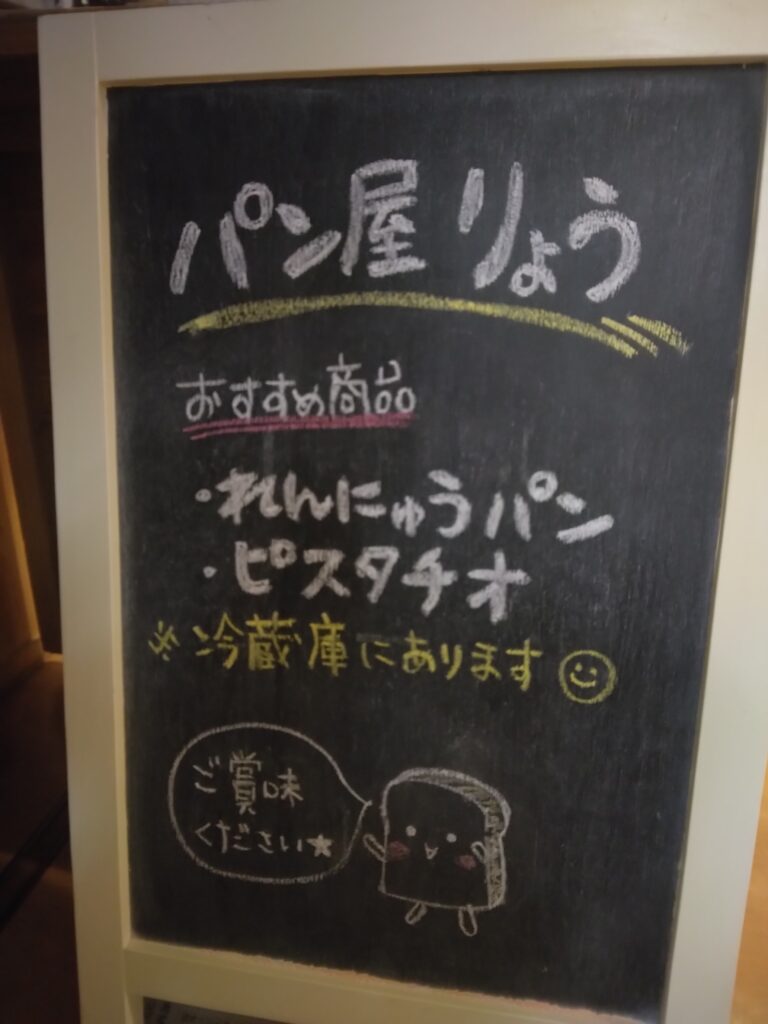 パン屋 りょう
おすすめ商品
・れんにゅうパン
・ピスタチオ
※冷蔵庫にあります
ご賞味
ください★